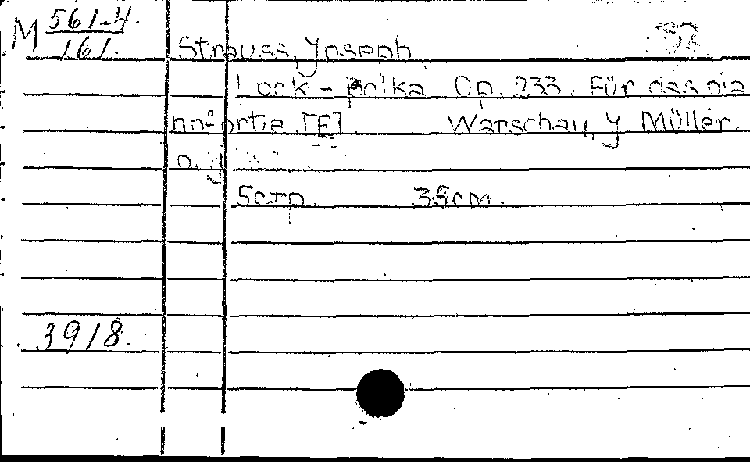 M 561-4.
161.
Strauss, Joseph.
Lock-polka Op. 233. Für das pia
noforte [F] Warschau, J Müller.
5стр. 35cm.
3918.